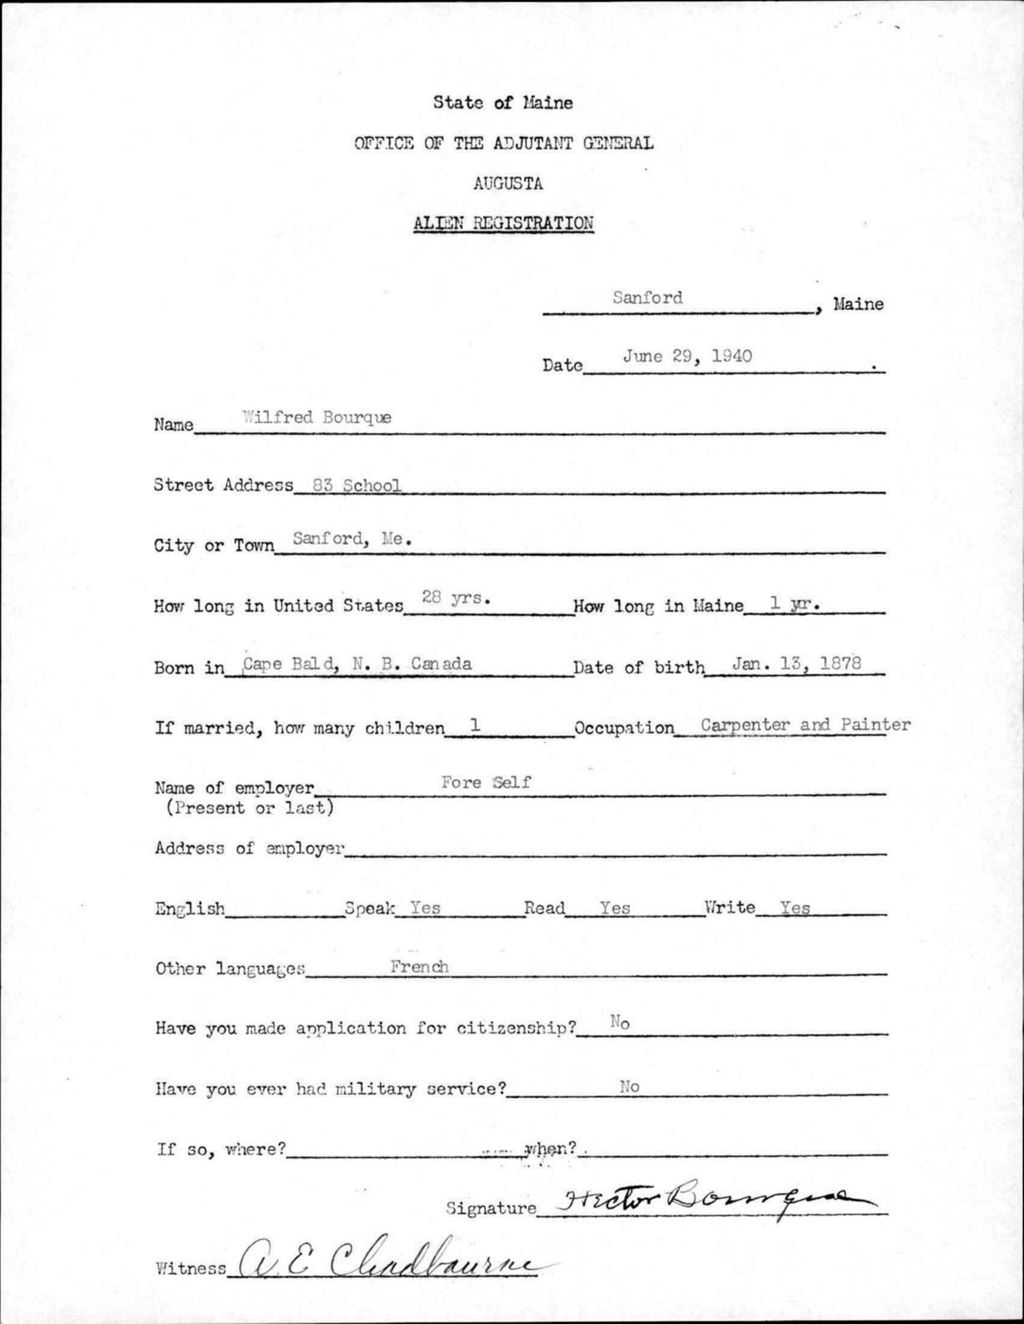 State of Maine
OFFICE OF THE ADJUTANT GENERAL
AUGUSTA
ALIEN REGISTRATION
Sanford, Maine
Date June 29, 1940.
Name Wilfred Bourque
Street Address 83 School
City or Town Sanford, Me.
How long in United States 28 yrs. How long in Maine 1 yr.
Born in Cape Bald, N. B. Canada Date of birth Jan. 13, 1878
If married, how many children 1 Occupation Carpenter and Painter
Name of employer Fore Self
(Present or last)
Address of employer
English Speak Yes Read Yes Write Yes
Other languages French
Have you made application for citizenship? No
Have you ever had military service? No
If so, where? when?
Signature Hector Bourque
Witness A. E Chadbourne